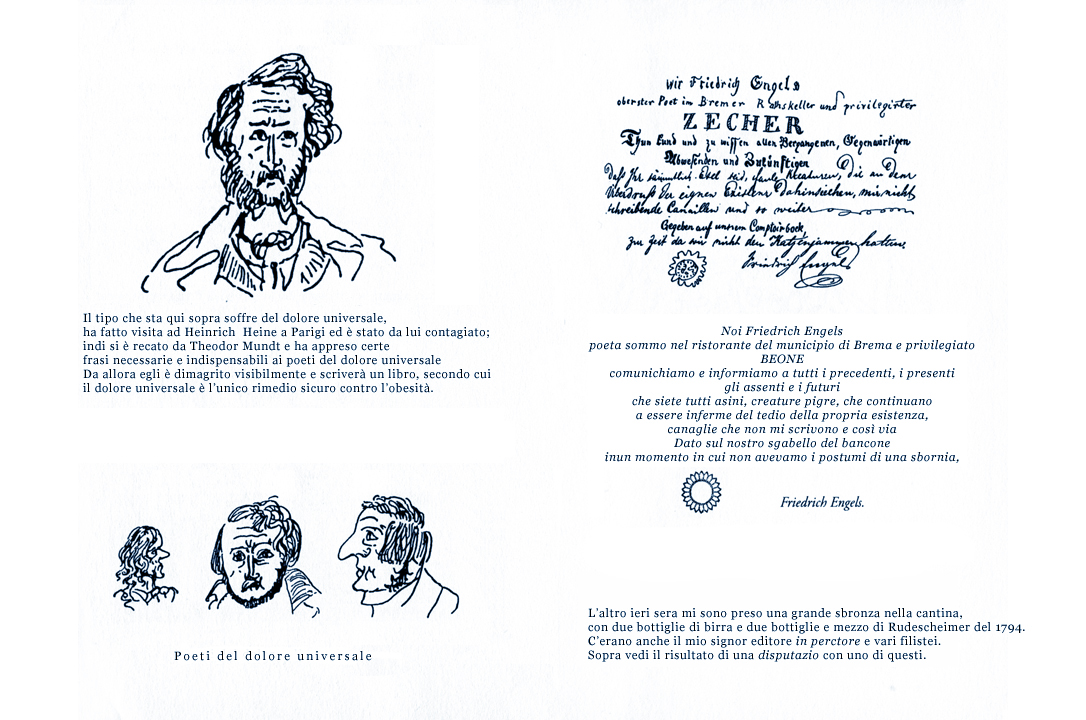 Il tipo che sta qui sopra soffre del dolore universale,
ha fatto visita ad Heinrich Heine a Parigi ed è stato da lui contagiato;
indi si è recato da Theodor Mundt e ha appreso certe
frasi necessarie e indispensabili ai poeti del dolore universale
Da allora egli è dimagrito visibilmente e scriverà un libro, secondo cui
il dolore universale è l'unico rimedio sicuro contro l'obesità.
Poeti del dolore universale
Wir Friedrich Engels
oberster Poet im Bremer Rathskeller und privilegirter
ZECHER
Thun kund und zu wissen allen Vergangenen, Gegenwärtigen
Abwesenden und Zukünftigen
daß Ihr sämmtlich Esel seid, faule Kreaturen, die an dem
Überdruß der eignen Existenz dahinsiechen, mir nicht
schreibende Canaillen und so weiter
Gegeben auf unserm Comptoirbock,
zur Zeit da wir nicht den Katzenjammer hatten.
Friedrich Engels
Noi Friedrich Engels
poeta sommo nel ristorante del municipio di Brema e privilegiato
BEONE
comunichiamo e informiamo a tutti i precedenti, i presenti
gli assenti e i futuri
che siete tutti asini, creature pigre, che continuano
a essere inferme del tedio della propria esistenza,
canaglie che non mi scrivono e così via
Dato sul nostro sgabello del bancone
inun momento in cui non avevamo i postumi di una sbornia,
Friedrich Engels.
L'altro ieri sera mi sono preso una grande sbronza nella cantina,
con due bottiglie di birra e due bottiglie e mezzo di Rudescheimer del 1794.
C'erano anche il mio signor editore in perctore e vari filistei.
Sopra vedi il risultato di una disputazio con uno di questi.